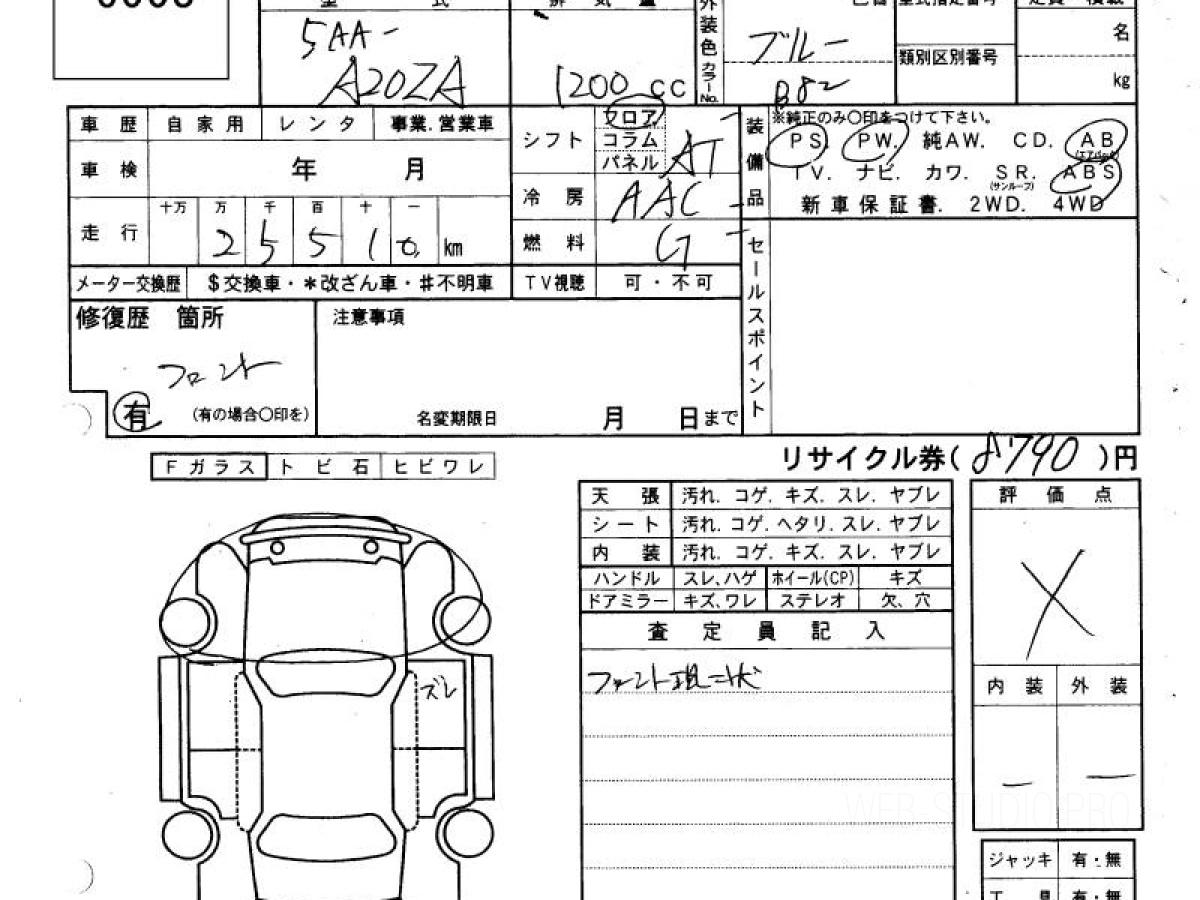 0008
型 式
5AA-
A20ZA
排 気 量
1200 cc
外装色 カラーNo.
ブルー
B82
型式指定番号
類別区別番号
定員・積載
名
kg
車 歴 自家用 レンタ 事業.営業車
車 検 年 月
走 行 十万 万 千 百 十 一
2 5 5 1 0 km
メーター交換歴 $交換車・*改ざん車・#不明車
シフト フロア コラム パネル AT
冷 房 AAC
燃 料 G
TV視聴 可・不可
装備品 ※純正のみ〇印をつけて下さい。
PS. PW. 純AW. CD. AB (エアバック)
TV. ナビ. カワ. SR. (サンルーフ) ABS
新車保証書. 2WD. 4WD
セールスポイント
修復歴 箇所
フロント
有 (有の場合〇印を)
注意事項
名変期限日 月 日まで
リサイクル券( 8790 )円
Fガラス トビ石 ヒビワレ
ズレ
天 張 汚れ. コゲ. キズ. スレ. ヤブレ
シート 汚れ. コゲ. ヘタリ. スレ. ヤブレ
内 装 汚れ. コゲ. キズ. スレ. ヤブレ
ハンドル スレ、ハゲ ホイール(CP) キズ
ドアミラー キズ、ワレ ステレオ 欠、穴
査 定 員 記 入
フロント現状
評 価 点
X
内 装 外 装
— —
WEB STUDIO PRO
ジャッキ 有・無
工 具 有・無